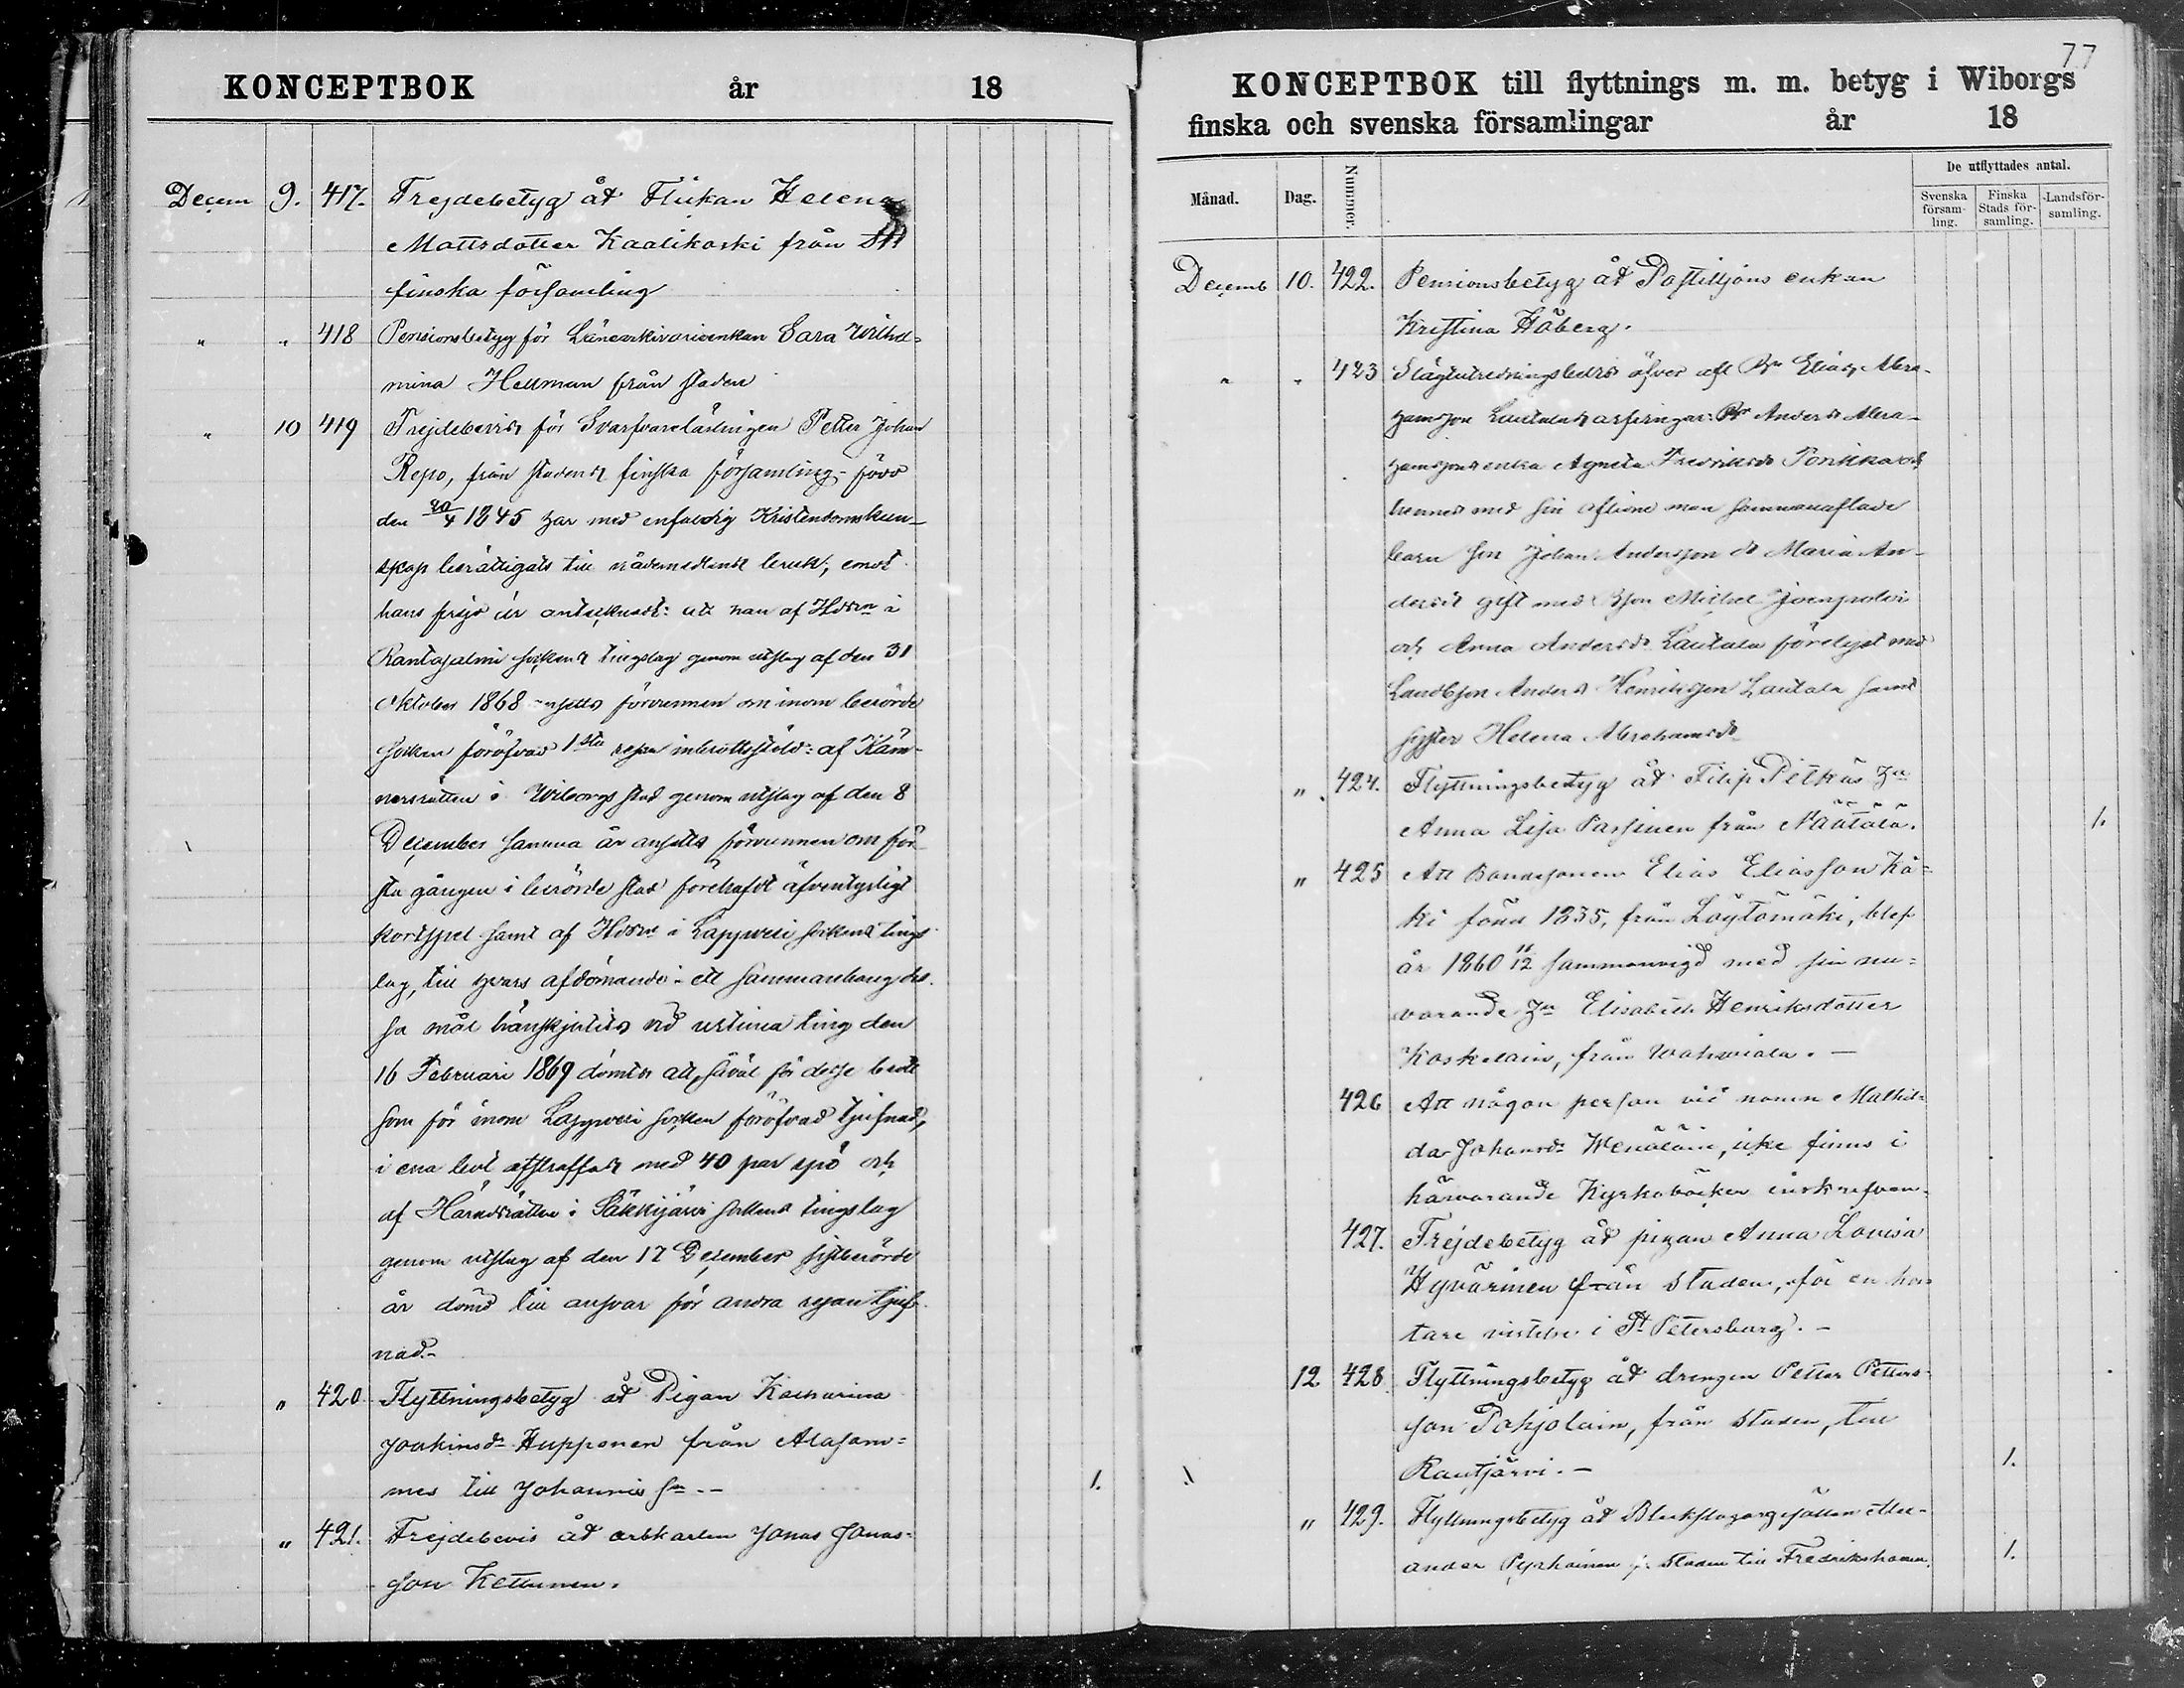 KONCEPTBOK år 18
Decem 9. 417. Frejdebetyg åt Flickan Helena
Mattsdotter Kaalikoski från
finska församling
" " 418 Pensionsbetyg för Länearkivarieenkan Sara Wilhel=
mina Hellman från staden
" 10 419 Frejdebevis för Svarfvarelärlingen Petter Johan
Repo, från stadens finska församling, född
den 20/4 1845 har med enfaldig Kristendomskun-
skap berättigats till nådemedlens bruk; emot
hans frejd är antecknadt: att han af Hdrn i
Rantasalmi sockens tingslag genom utslag af den 31
Oktober 1868 ansetts förvunnen om inom berörde
socken föröfvad 1sta resan inbrottsstöld: af Käm-
nersrätten i Wiborgs stad genom utslag af den 8
December samma år ansetts förvunnen om för-
sta gången i berörde stad förehaft äfventyrligt
kortspel samt af Hdrn i Lappvesi sockens tings
lag, till hvars afdömande i ett sammanhang des-
sa mål hänskjutits vid urtima ting den
16 Februari 1869 dömts att, såväl för desse brott
som för inom Lappvesi socken föröfvad tjufnad,
i ena bot afstraffas med 40 par spö och
af Häradsrätten i Säkkijärvi sockens tingslag
genom utslag af den 17 December sistberörde
år dömd till ansvar för andra resan tjuf-
nad.-
" 420. Flyttningsbetyg åt Pigan Katharina
Joakimsdr Hupponen från Alasom=
mes till Johannis sn.- 1.
" 421. Frejdebevis åt arbkarlen Jonas Jonas-
son Kettunen.
77
KONCEPTBOK till flyttnings m. m. betyg i Wiborgs
finska och svenska församlingar år 18
Månad. Dag. Nummer. De utflyttades antal.
Svenska församling. Finska Stads församling. Landsförsamling.
Decemb 10. 422. Pensionsbetyg åt Postiljons enkan
Kristina Höberg.
" " 423 Slägtutredningsbevis öfver afl Bn Elias Abra-
hamsson Lautalas arfvingar: Bn Anders Abra-
hamssons enka Agneta Fredriksdr Ponkka och
hennes med sin aflidne man sammanaflade
barn son Johan Andersson dr Maria An-
dersdr gift med Bson Michel
och Anna Andersdr Lautala förelyst med
Landbson Anders Henriksson Lautala samt
syster Helena Abrahamsdr
" 424. Flyttningsbetyg åt Filip Pitkäs hu
Anna Lisa Parsinen från Näätälä. 1.
" 425 Att Bondesonen Elias Eliasson Kä=
ki född 1835, från Löytömäki, blef
år 1860 16/12 sammanvigd med sin nu=
varande hu Elisabeth Henriksdotter
Koskelain, från Wahviala. -
426 Att någon person vid namn Mathil=
da Johansdr Wenäläin, icke finns i
härvarande Kyrkoböcker inskrifven.
427. Frejdebetyg åt pigan Anna Lovisa
Hyvärinen från staden, för en kor=
tare vistelse i St Petersburg. -
12 428 Flyttningsbetyg åt drengen Petter Petters-
son Pohjolain, från staden, till
Rautjärvi. - 1.
" 429. Flyttningsbetyg åt Bleckslagargesällen Alex-
ander Pyrhöinen fr. staden till Fredrikshamn. 1.